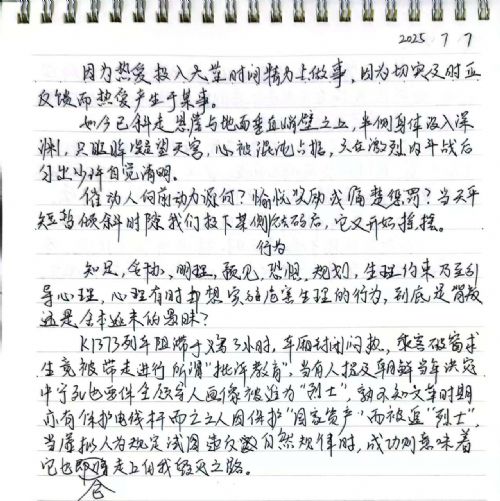 2025 7 7
因为热爱投入大量时间精力去做事，因为切实及时正
反馈而热爱产生于某事。
如今已斜走悬崖与地面垂直峭壁之上，半侧身体没入深
渊，只眼睁凝望天穹，心被混沌占据，只在激烈内斗战后
匀出少许自觉清明。
催动人向前动力源何？愉悦奖励或痛楚惩罚？当天平
短暂倾斜时除我们投下某侧砝码后，它又开始摇摆。
行为
知足，妥协，明理，预见，恐惧，规划，生理约束乃至引
导心理，心理有时却想实施危害生理的行为，到底是背叛
还是全本始末的愚昧？
K1373列车阻滞于义乌3小时，车厢封闭闷热，乘客破窗求
生竟被带走进行所谓“批评教育”，当有人提及朝鲜当年洪灾
中宁死也要保全领导人画像被追为“烈士”，孰不知文革时期
亦有保护电线杆而之人因保护“国家资产”而被追“烈士”，
当虚拟人为规定试图违反自然规律时，成功则意味着
它也会走上自我毁灭之路。